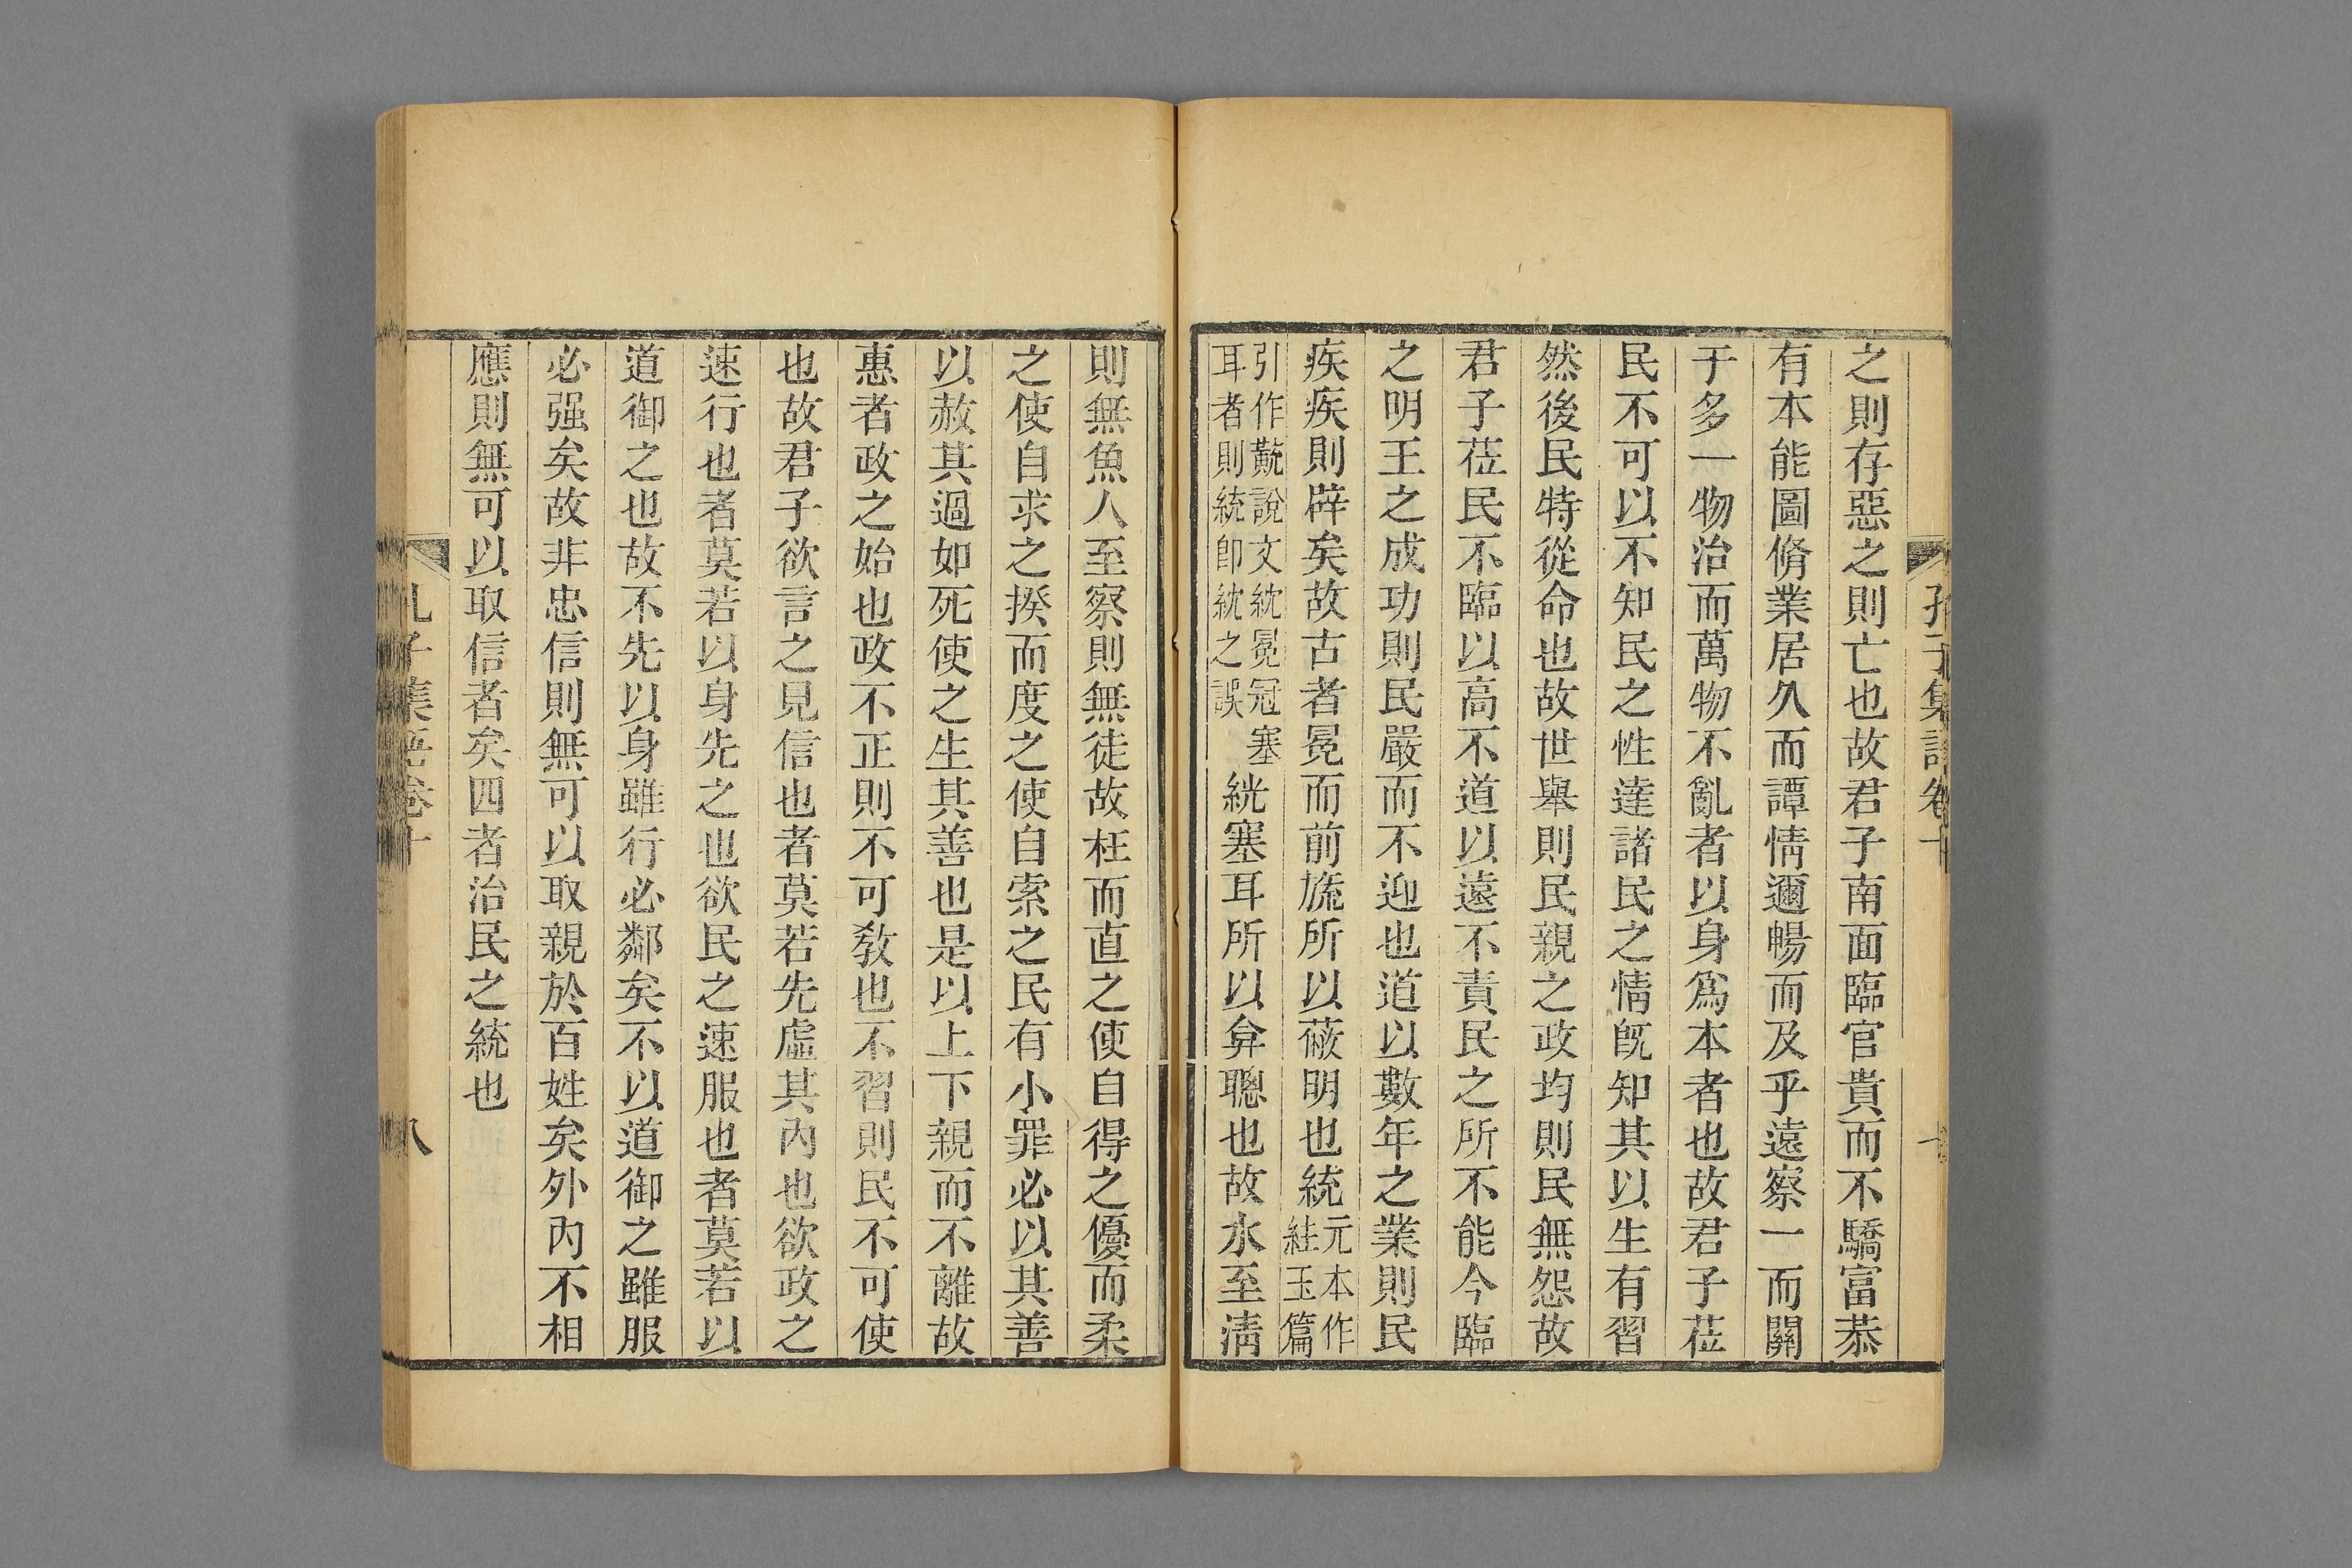 之則存惡之則亡也故君子南面臨官貴而不驕富恭
有本能圖脩業居久而譚情邇暢而及乎遠察一而關
于多一物治而萬物不亂者以身爲本者也故君子莅
民不可以不知民之性達諸民之情旣知其以生有習
然後民特從命也故世舉則民親之政均則民無怨故
君子莅民不臨以高不道以遠不責民之所不能今臨
之明王之成功則民嚴而不迎也道以數年之業則民
疾疾則辟矣故古者冕而前旒所以蔽明也統元本作絓玉篇
引作蘳說文紞冕冠塞耳者則統卽紞之誤絖塞耳所以弇聰也故水至淸
則無魚人至察則無徒故枉而直之使自得之優而柔
之使自求之揆而度之使自索之民有小罪必以其善
以赦其過如死使之生其善也是以上下親而不離故
惠者政之始也政不正則不可敎也不習則民不可使
也故君子欲言之見信也者莫若先虛其內也欲政之
速行也者莫若以身先之也欲民之速服也者莫若以
道御之也故不先以身雖行必鄰矣不以道御之雖服
必强矣故非忠信則無可以取親於百姓矣外內不相
應則無可以取信者矣四者治民之統也
孔子集語卷十
八